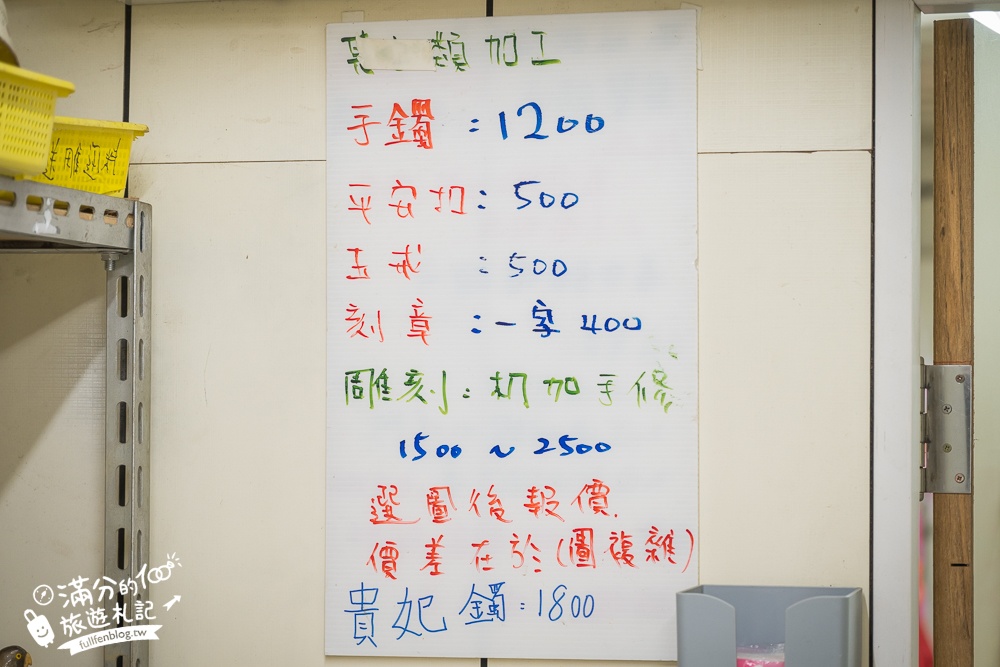 類加工
手鐲：1200
平安扣：500
玉戒：500
刻章：一字400
雕刻：机加手修
1500～2500
選圖後報價.
價差在於(圖複雜)
貴妃鐲：1800
滿分的
旅遊札記
fullfenblog.tw